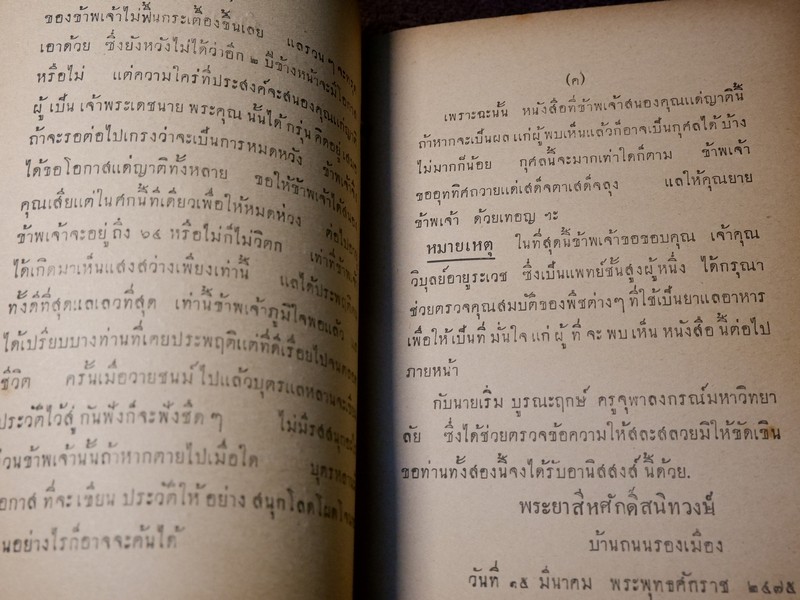 ของข้าพเจ้าไม่ฟื้นกระเตื้องขึ้นเลย แลรวนๆจะ
เอาด้วย ซึ่งยังหวังไม่ได้ว่าอีก ๒ ปีข้างหน้าจะมีโอกาส
หรือไม่ แต่ความใคร่ที่ประสงค์จะสนองคุณแก่ญาติ
ผู้เป็นเจ้าพระเดชนายพระคุณ นั้นได้กรุ่นคิดอยู่เสมอ
ถ้าจะรอต่อไปเกรงว่าจะเป็นการหมดหวัง ข้าพเจ้าจึง
ได้ขอโอกาสแด่ญาติทั้งหลาย ขอให้ข้าพเจ้าได้สนอง
คุณเสียแต่ในศกนี้ทีเดียวเพื่อให้หมดห่วง ต่อไป
ข้าพเจ้าจะอยู่ถึง ๖๔ หรือไม่ก็ไม่วิตก เท่าที่ข้าพเจ้า
ได้เกิดมาเห็นแสงสว่างเพียงเท่านี้ แลได้ประพฤติ
ทั้งดีที่สุดแลเลวที่สุด เท่านี้ข้าพเจ้าภูมิใจพอแล้ว
ได้เปรียบบางท่านที่เคยประพฤติแต่ที่ดีเรื่อยไปจนตลอด
ชีวิต ครั้นเมื่อวายชนม์ไปแล้วบุตรแลหลานจะ
ประวัติไว้สู่กันฟังก็จะฟังชืดๆ ไม่มีรสสนุก
ส่วนข้าพเจ้านั้นถ้าหากตายไปเมื่อใด บุตรหลาน
โอกาสที่จะเขียนประวัติให้อย่างสนุกโลดโผด
นอย่างไรก็อาจจะค้นได้
(ฅ)
เพราะฉะนั้น หนังสือที่ข้าพเจ้าสนองคุณแด่ญาตินี้
ถ้าหากจะเป็นผลแก่ผู้พบเห็นแล้วก็อาจเป็นกุศลได้บ้าง
ไม่มากก็น้อย กุศลนี้จะมากเท่าใดก็ตาม ข้าพเจ้า
ขออุททิศถวายแด่เสด็จตาเสด็จลุง แลให้คุณยาย
ข้าพเจ้า ด้วยเทอญ ฯะ
หมายเหตุ ในที่สุดนี้ข้าพเจ้าขอขอบคุณ เจ้าคุณ
วิบุลย์อายุระเวช ซึ่งเป็นแพทย์ชั้นสูงผู้หนึ่ง ได้กรุณา
ช่วยตรวจคุณสมบัติของพืชต่างๆที่ใช้เป็นยาแลอาหาร
เพื่อให้เป็นที่มั่นใจแก่ผู้ที่จะพบเห็นหนังสือนี้ต่อไป
ภายหน้า
กับนายเริ่ม บูรณะฤกษ์ ครูจุฬาลงกรณ์มหาวิทยา
ลัย ซึ่งได้ช่วยตรวจข้อความให้สละสลวยมิให้ขัดเขิน
ขอท่านทั้งสองนี้จงได้รับอานิสสงส์นี้ด้วย.
พระยาสีหศักดิ์สนิทวงษ์
บ้านถนนรองเมือง
วันที่ ๑๕ มีนาคม พระพุทธศักราช ๒๔๗๕